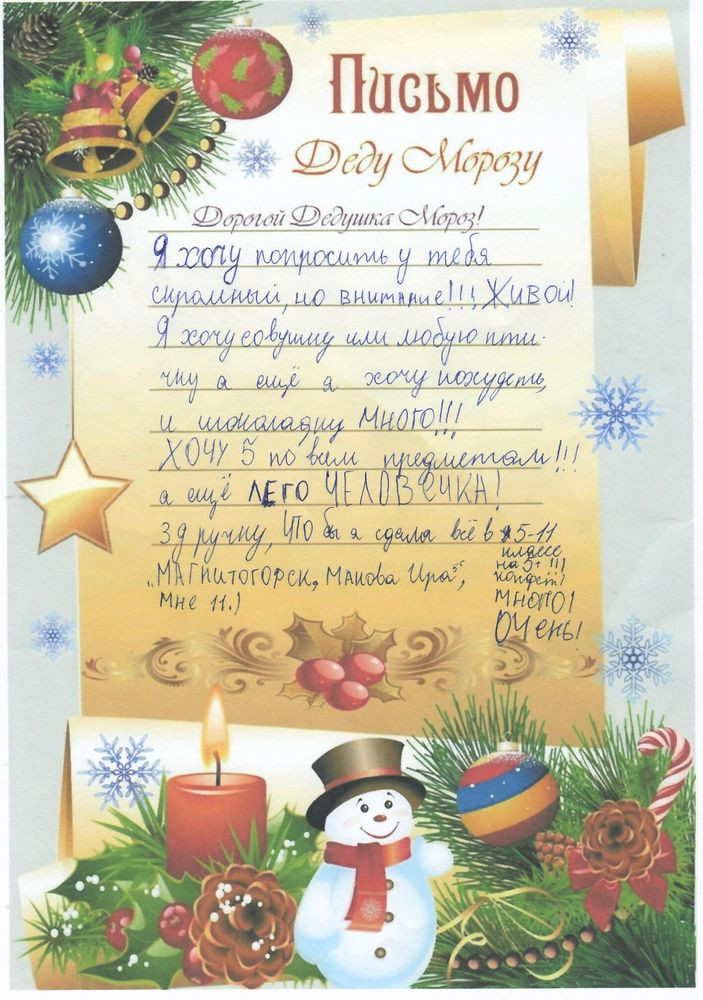 Письмо
Деду Морозу
Дорогой Дедушка Мороз!
Я хочу попросить у тебя
скромный, но внимание!!! Живой!
Я хочу совушку или любую пти-
чку а ещё я хочу похудеть,
и шоколадку много!!!
ХОЧУ 5 по всем предметам!!!
а ещё ЛЕГО ЧЕЛОВЕЧКА!
3д ручку, чтобы я сдала всё в 5-11
классе
на 5+!!!
конфет!
много!
Очень!
"Магнитогорск, Макова Ира",
мне 11.)